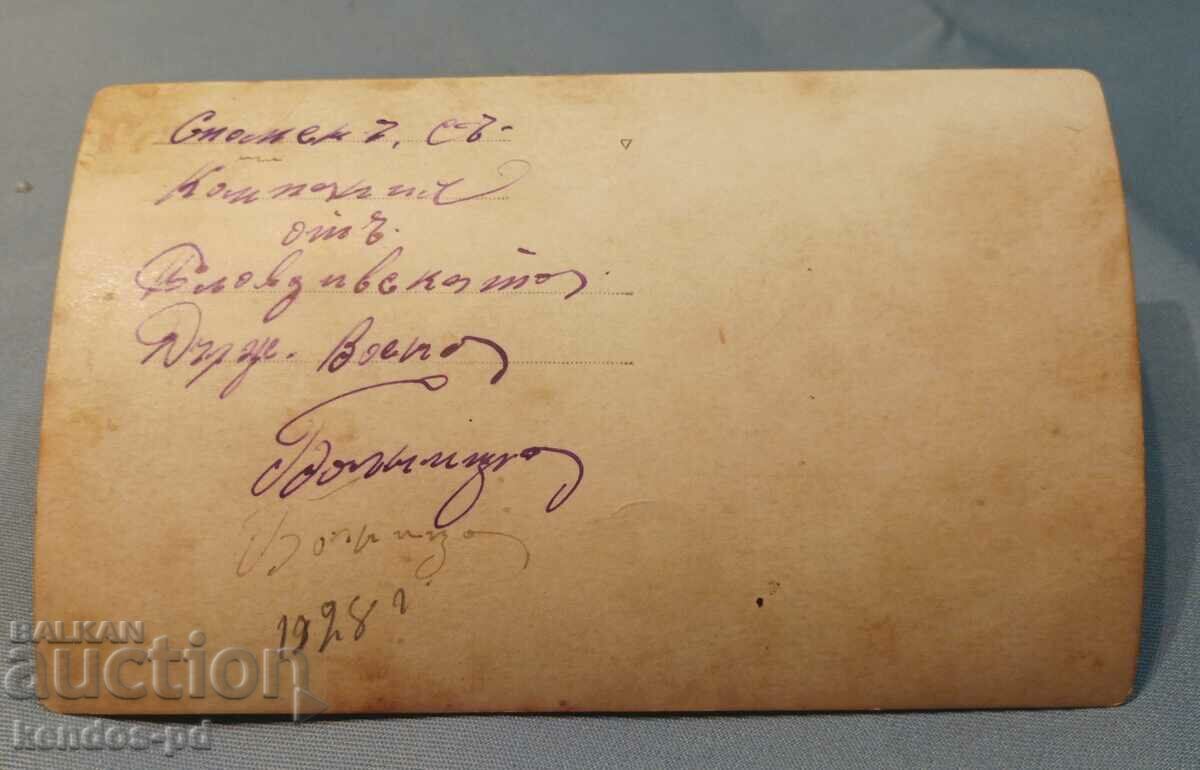 Споменъ, съ
Компания
отъ
Пловдивската
Държ. Военна
Болница
Болница
1928 г
BALKAN
auction
kendos-pd